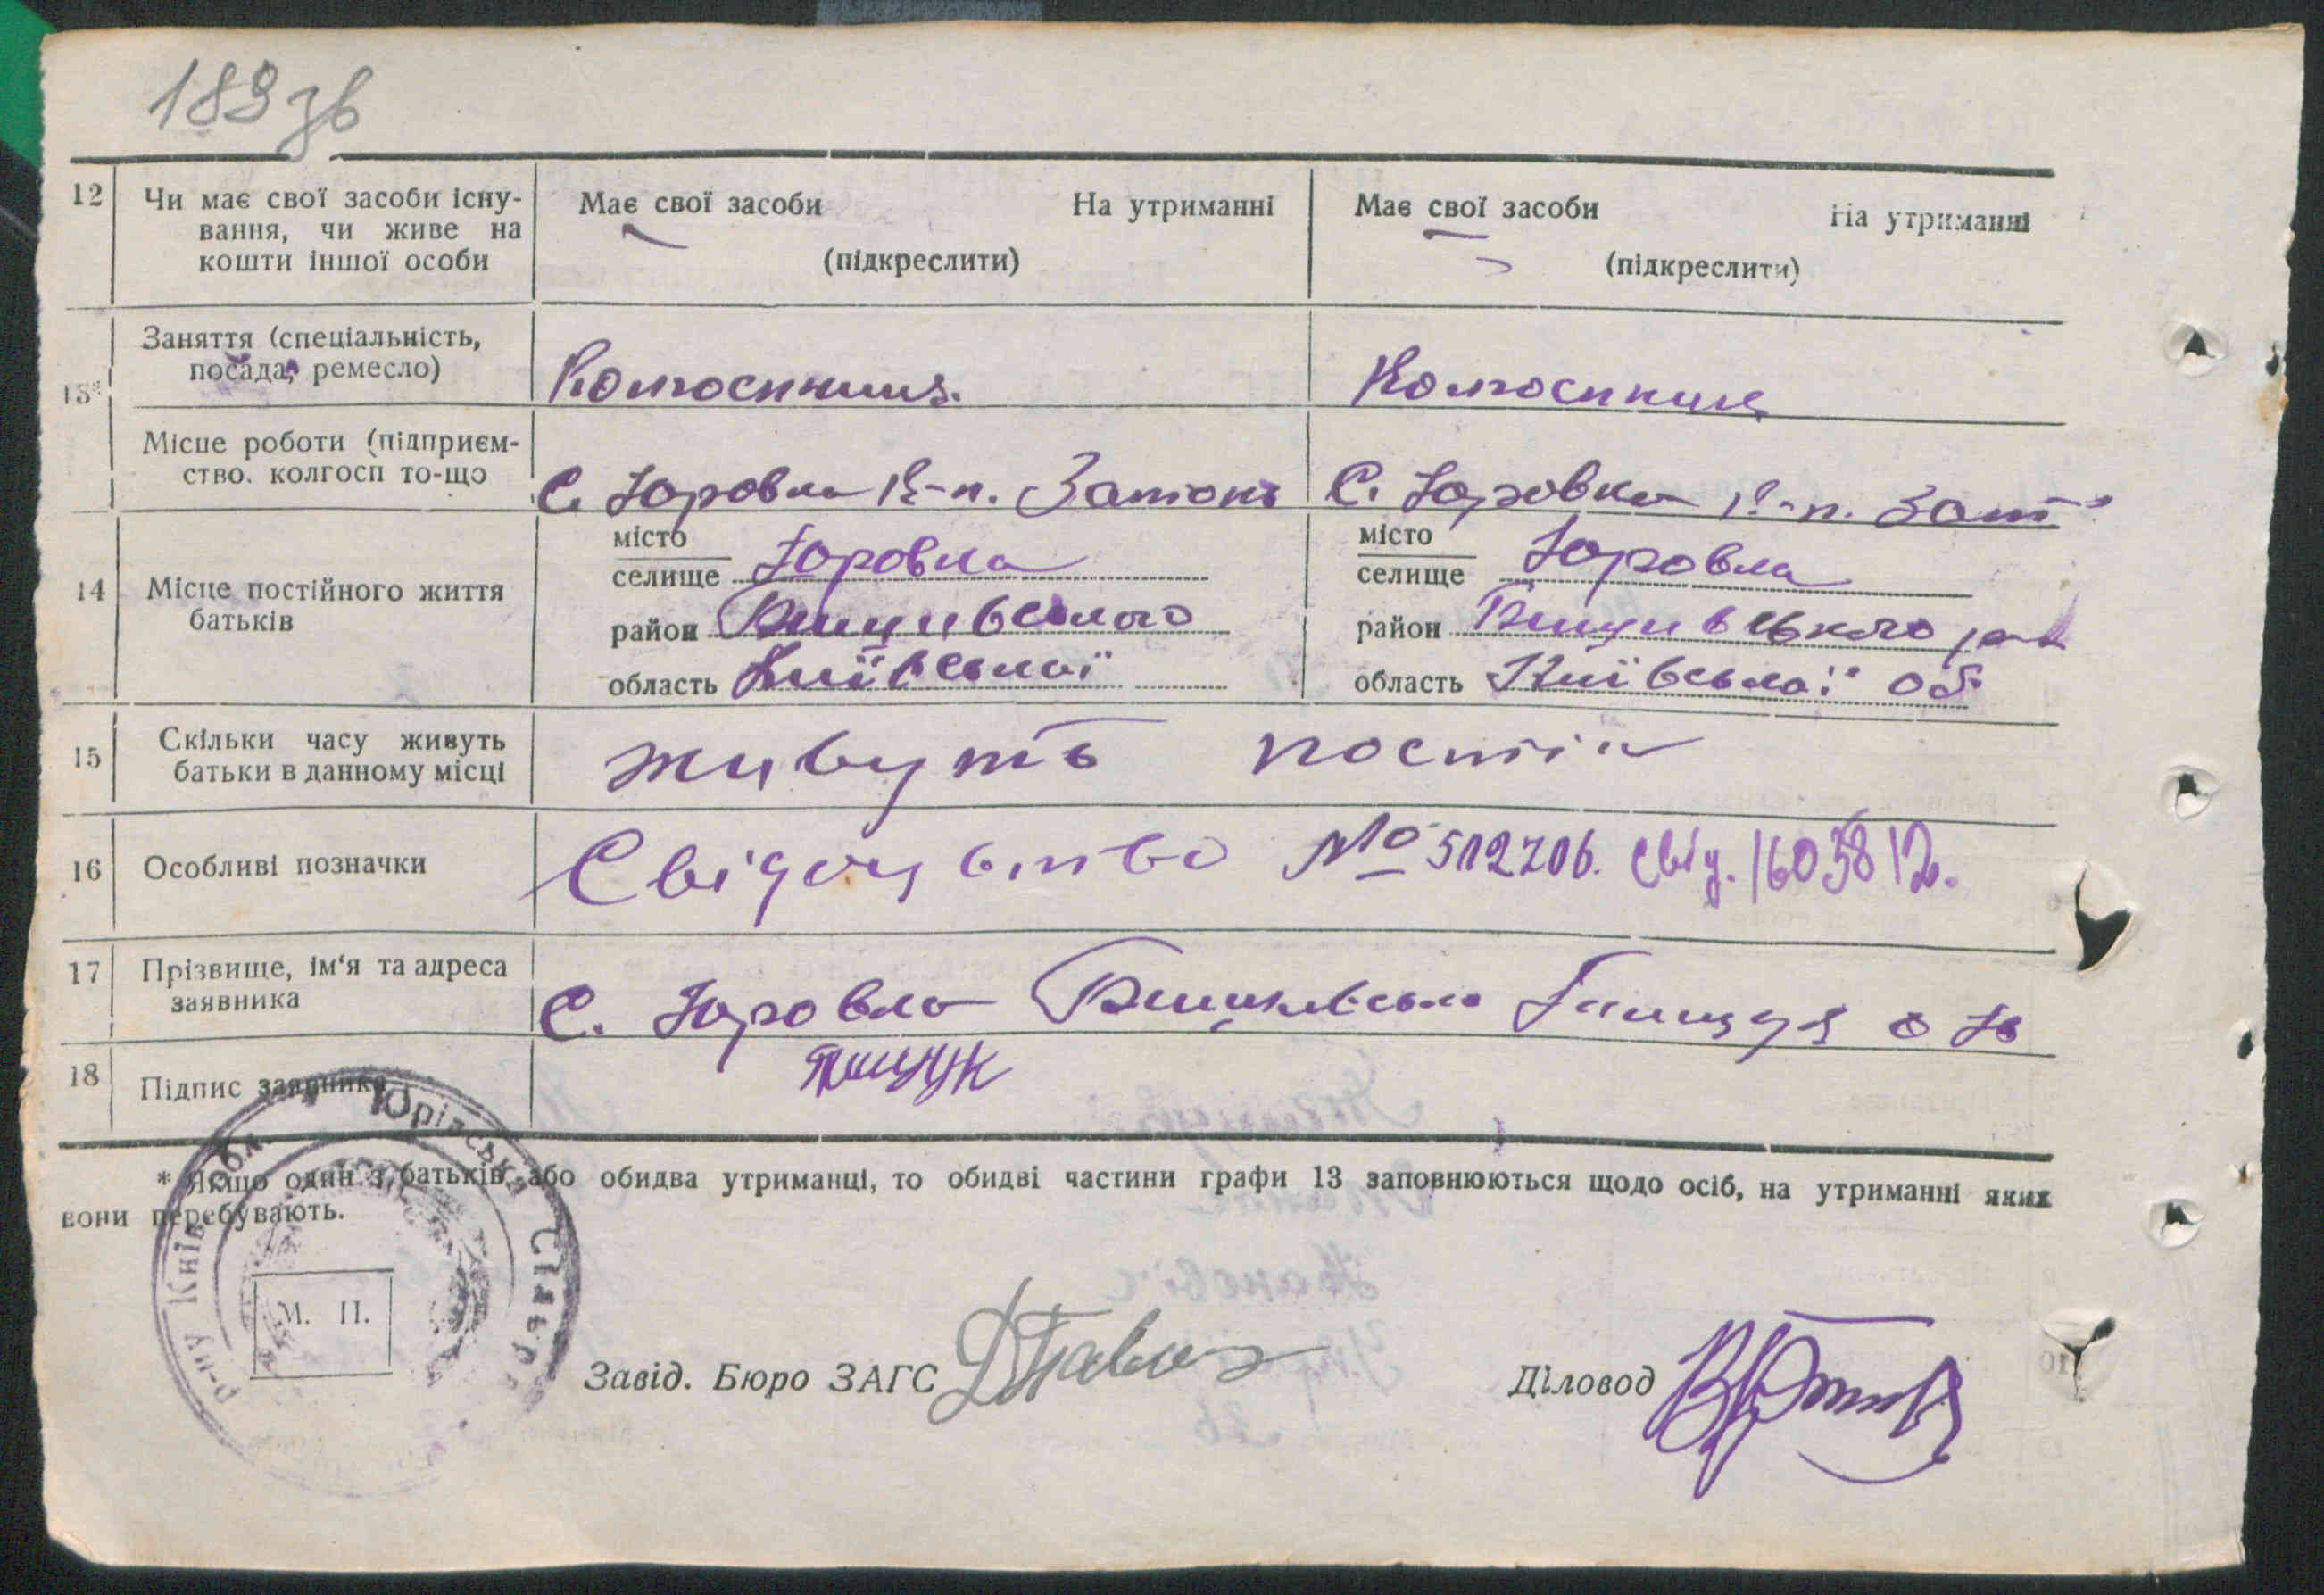 183 зв
12 Чи має свої засоби існу-
вання, чи живе на
кошти іншої особи
Має свої засоби На утриманні
(підкреслити)
Має свої засоби На утриманні
(підкреслити)
13* Заняття (спеціальність,
посада, ремесло)
Місце роботи (підприєм-
ство. колгосп то-що
С. Юровка к-п.
С. Юровка к-п.
14 Місце постійного життя
батьків
місто
селище Юровка
район
область Київської
місто
селище Юровка
район
область Київської об
15 Скільки часу живуть
батьки в данному місці
живуть постін
16 Особливі позначки
Свідоцтво № 512706. Свід. 1603812.
17 Прізвище, ім'я та адреса
заявника
С. Юровка
18 Підпис заявника
* Якщо один з батьків, або обидва утриманці, то обидві частини графи 13 заповнюються щодо осіб, на утриманні яких
вони перебувають.
Юрівська Сільр
р-ну Київ обл.
М. П.
Завід. Бюро ЗАГС
Діловод